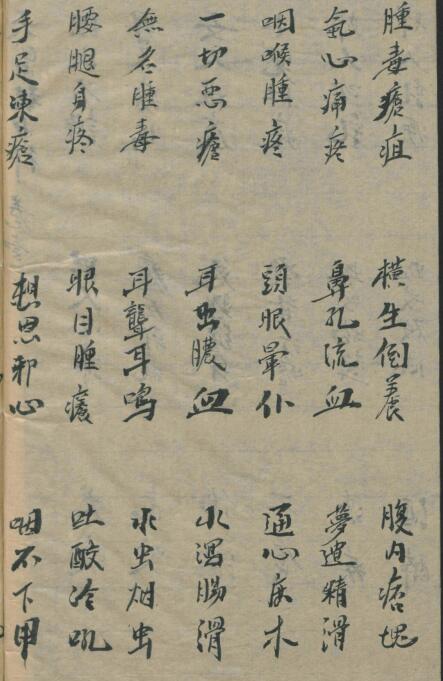 腫毒瘡疽 橫生倒養 腹內痞塊
氣心痛疼 鼻孔流血 夢遗精滑
咽喉腫疼 頭眼暈仆 通心床木
一切惡瘡 耳出膿血 水瀉腸滑
無名腫毒 耳聾耳鳴 水虫烟虫
腰腿身疼 眼目腫癢 吐酸冷
手足凍瘡 想思邪心 咽不下